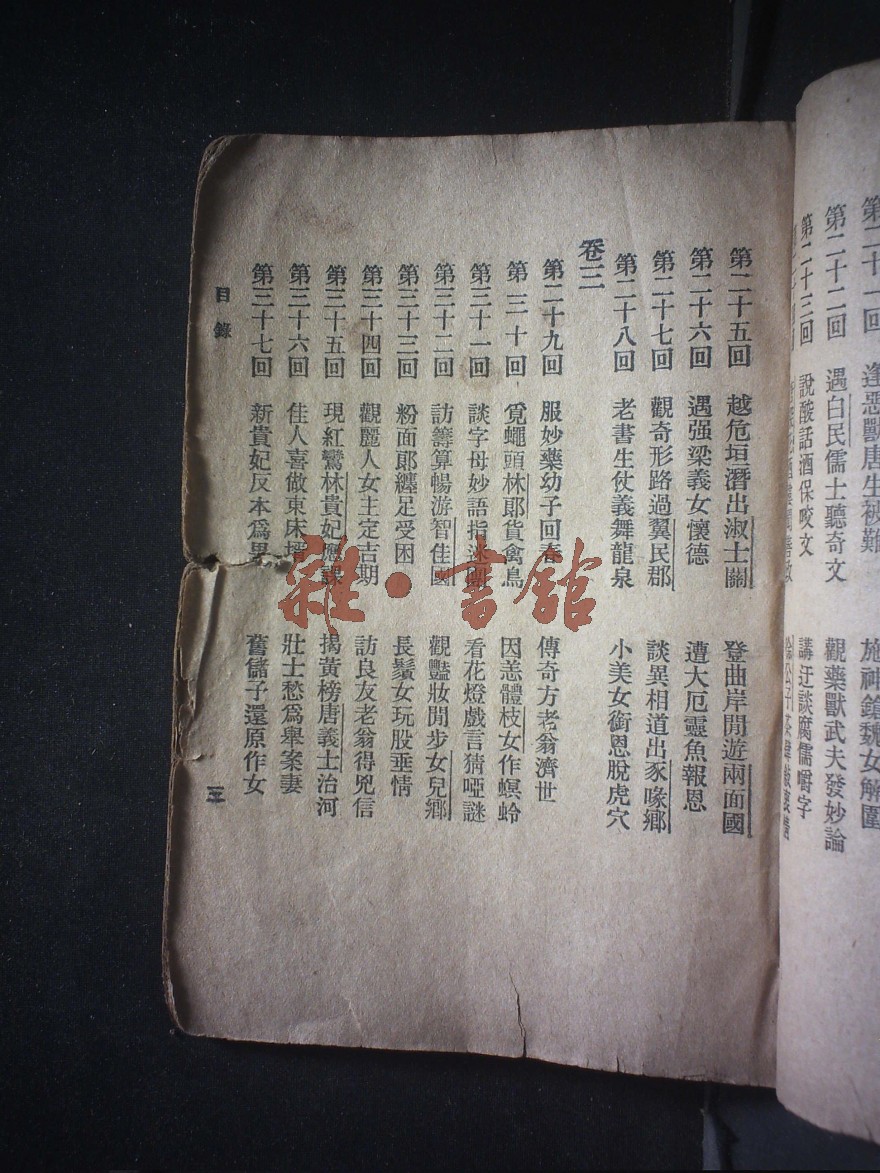 第二十一回 逢惡獸唐生被難 施神鎗魏女解圍
第二十二回 遇白民儒士聽奇文 觀藥獸武夫發妙論
第二十三回 說酸話酒保咬文 講迂談腐儒嚼字
第二十五回 越危垣潛出淑士關 登曲岸閒遊兩面國
第二十六回 遇强梁義女懷德 遭大厄靈魚報恩
第二十七回 觀奇形路過翼民郡 談異相道出豕喙鄉
第二十八回 老書生仗義舞龍泉 小美女銜恩脫虎穴
卷三
第二十九回 服妙藥幼子回春 傳奇方老翁濟世
第三十回 覓蠅頭林郞貨禽鳥 因恙體枝女作螟蛉
第三十一回 談字母妙語指迷團 看花燈戲言猜啞謎
第三十二回 訪籌算暢游智佳國 觀豔妝閒步女兒鄉
第三十三回 粉面郞纏足受困 長鬚女玩股垂情
第三十四回 觀麗人女主定吉期 訪良友老翁得兇信
第三十五回 現紅鸞林貴妃應課 揭黃榜唐義士治河
第三十六回 佳人喜做東床壻 壯士愁爲舉案妻
第三十七回 新貴妃反本爲男 舊儲子還原作女
目錄
三
雜·書館